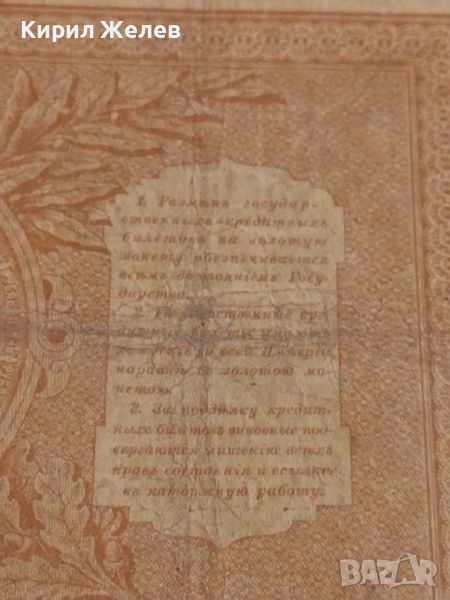 Кирил Желев
1. Размѣнъ государ-
ственныхъ кредитныхъ
билетовъ на золотую
монету обезпечивается
всѣмъ достояніемъ Госу-
дарства.
2. Государственные кре-
дитные билеты имѣютъ
хожденіе во всей Имперіи
наравнѣ съ золотою мо-
нетою.
3. За поддѣлку кредит-
ныхъ билетовъ виновные под-
вергаются лишенію всѣхъ
правъ состоянія и ссылкѣ
въ каторжную работу.
BAZAR